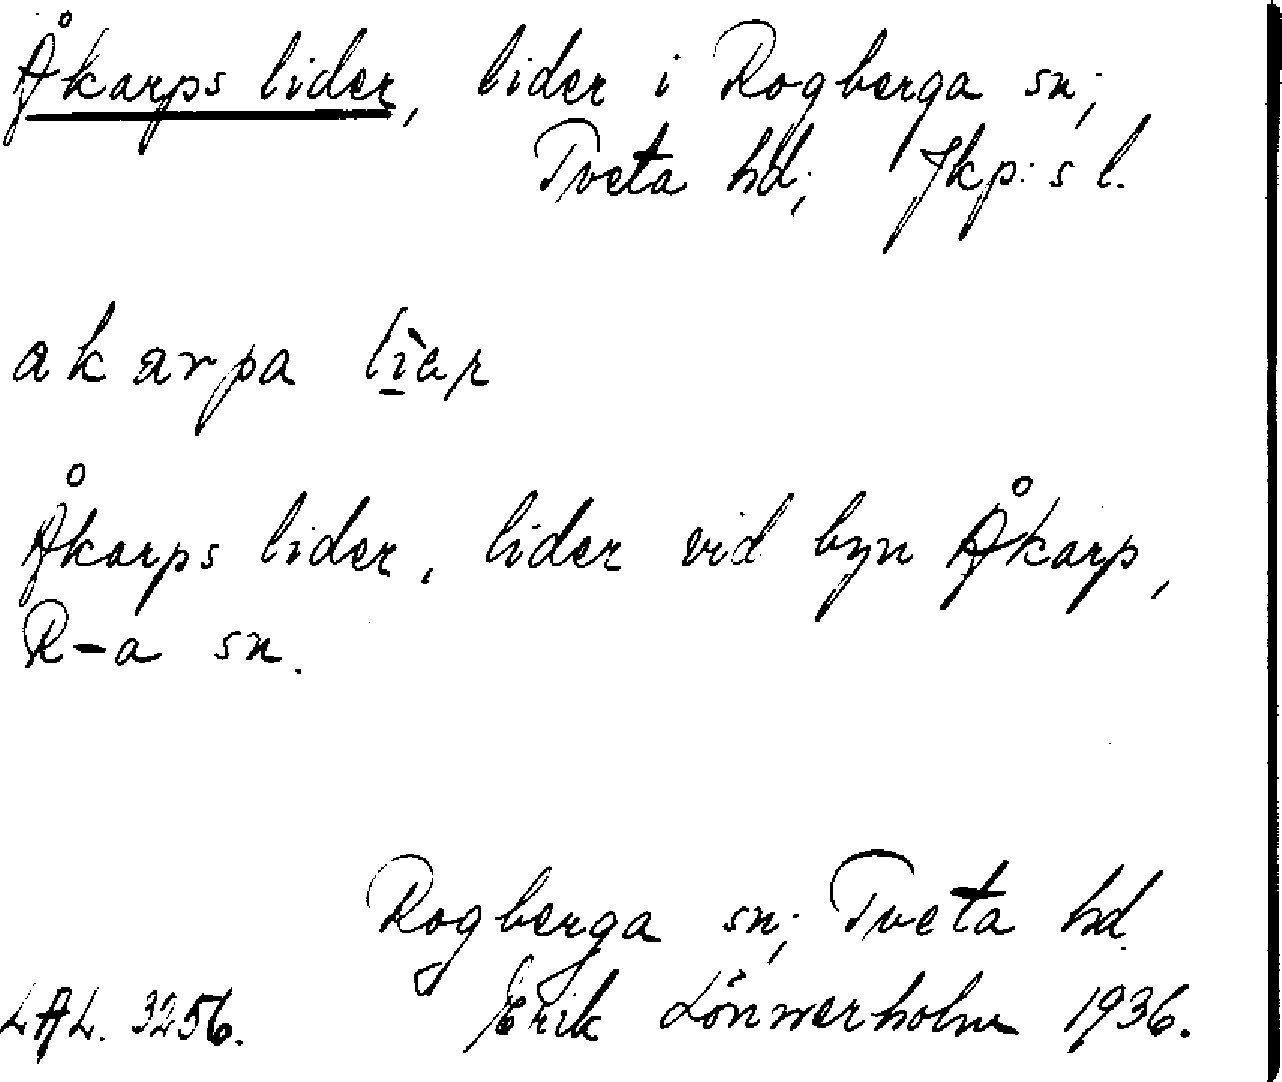 Åkarps lider, lider i Rogberga sn;
Tveta hd; Jkp:s l.
akarpa līar
Åkarps lider, lider vid byn Åkarp,
R-a sn.
Rogberga sn; Tveta hd.
LAL. 3256. Erik Lönnerholm 1936.